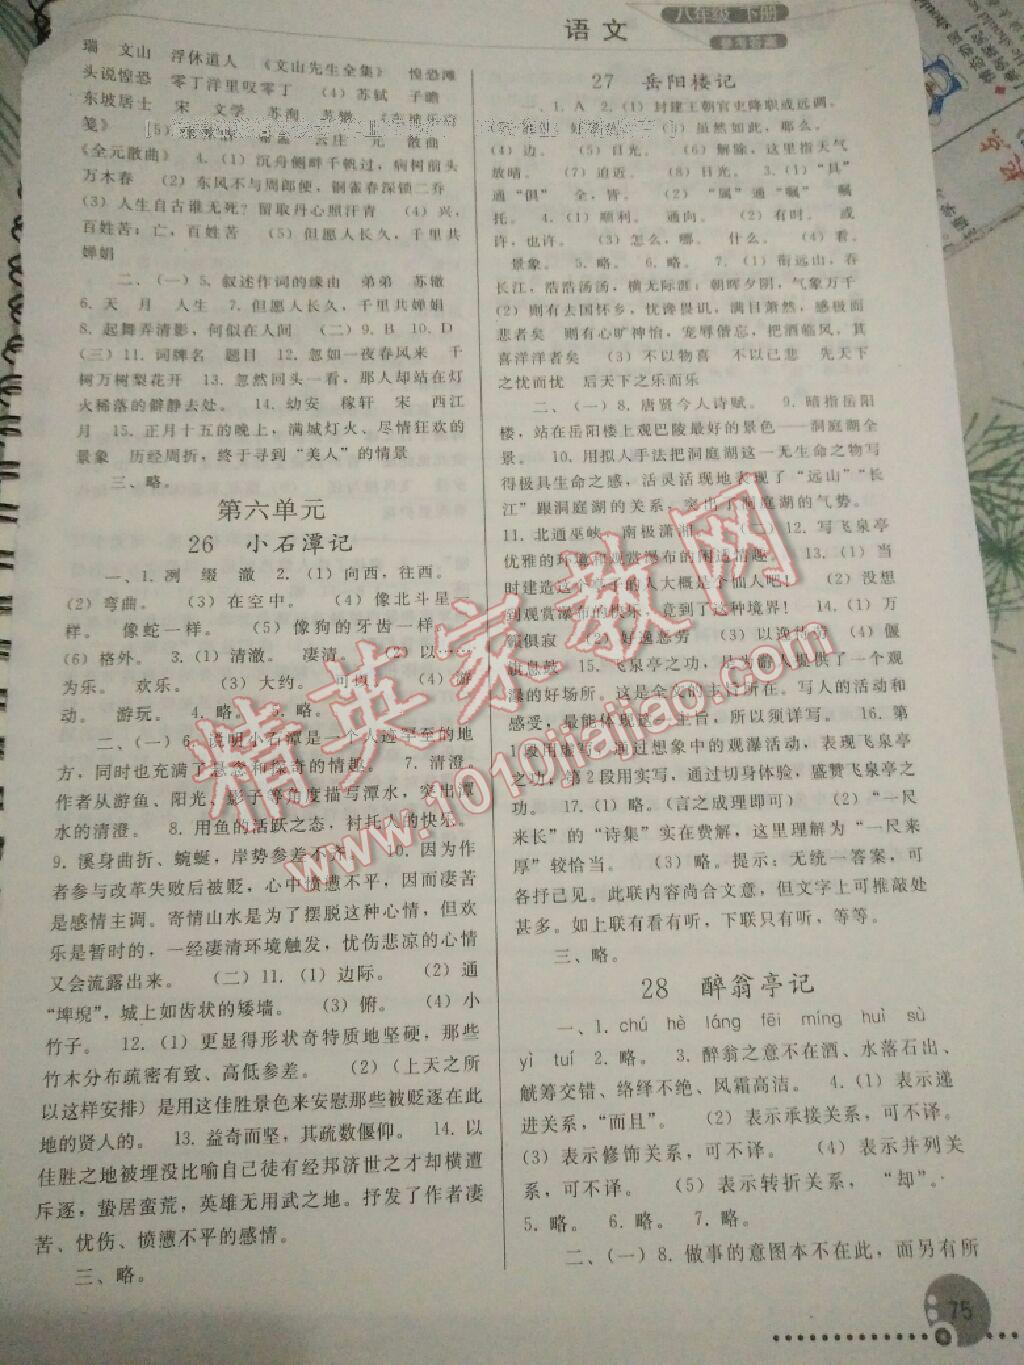 语文
八年级 下册
参考答案
瑞 文山 浮休道人 《文山先生全集》 惶恐滩
头说惶恐 零丁洋里叹零丁 (4)苏轼 子瞻
东坡居士 宋 文学 苏洵 苏辙
笺》 (5) 元 散曲
《全元散曲》 4.(1)沉舟侧畔千帆过,病树前头
万木春 (2)东风不与周郎便,铜雀春深锁二乔
(3)人生自古谁无死?留取丹心照汗青 (4)兴,
百姓苦;亡,百姓苦 (5)但愿人长久,千里共
婵娟
二、(一)5. 叙述作词的缘由 弟弟 苏辙
6. 天 月 人生 7. 但愿人长久,千里共婵娟
8. 起舞弄清影,何似在人间 (二)9. B 10. D
(三)11. 词牌名 题目 12. 忽如一夜春风来 千
树万树梨花开 13. 忽然回头一看,那人却站在灯
火稀落的僻静去处。 14. 幼安 稼轩 宋 西江
月 15. 正月十五的晚上,满城灯火、尽情狂欢的
景象 历经周折,终于寻到“美人”的情景
三、略。
第六单元
26 小石潭记
一、1. 冽 缀 澈 2.(1)向西,往西。
(2)弯曲。 (3)在空中。 (4)像北斗星一
样。 像蛇一样。 (5)像狗的牙齿一样。
(6)格外。 3.(1)清澈。 凄清。 (2)以……
为乐。 欢乐。 (3)大约。 可以。 (4)游
动。 游玩。 4. 略。 5. 略。
二、(一)6. 说明小石潭是一个人迹罕至的地
方,同时也充满了悬念和探奇的情趣。 7. 清澄。
作者从游鱼、阳光、影子等角度描写潭水,突出潭
水的清澄。 8. 用鱼的活跃之态,衬托人的快乐。
9. 溪身曲折、蜿蜒,岸势参差不齐。 10. 因为作
者参与改革失败后被贬,心中愤懑不平,因而凄苦
是感情主调。寄情山水是为了摆脱这种心情,但欢
乐是暂时的,一经凄清环境触发,忧伤悲凉的心情
又会流露出来。 (二)11.(1)边际。 (2)通
“埤堄”,城上如齿状的矮墙。 (3)俯。 (4)小
竹子。 12.(1)更显得形状奇特质地坚硬,那些
竹木分布疏密有致、高低参差。 (2)(上天之所
以这样安排)是用这佳胜景色来安慰那些被贬逐在此
地的贤人的。 13. 益奇而坚,其疏数偃仰。 14. 以
佳胜之地被埋没比喻自己徒有经邦济世之才却横遭
斥逐,蛰居蛮荒,英雄无用武之地。抒发了作者凄
苦、忧伤、愤懑不平的感情。
三、略。
27 岳阳楼记
一、1. A 2.(1)封建王朝官吏降职或远调。
(3)虽然如此,那么。
(4)边。 (5)日光。 (6)解除,这里指天气
放晴。 (7)迫近。 (8)日光。 3.(1)“具”
通“俱” 全,皆。 (2)“属”通“嘱” 嘱
托。 4.(1)顺利。 通向。 (2)有时。 或
许,也许。 (3)怎么,哪。 什么。 (4)看。
景象。 5. 略。 6. 略。 7.(1)衔远山,吞
长江,浩浩汤汤,横无际涯;朝晖夕阴,气象万千
(2)则有去国怀乡,忧谗畏讥,满目萧然,感极而
悲者矣 则有心旷神怡,宠辱偕忘,把酒临风,其
喜洋洋者矣 (3)不以物喜 不以己悲 先天下
之忧而忧 后天下之乐而乐
二、(一)8. 唐贤今人诗赋。 9. 暗指岳阳
楼,站在岳阳楼上观巴陵最好的景色——洞庭湖全
景。 10. 用拟人手法把洞庭湖这一无生命之物写
得极具生命之感,活灵活现地表现了“远山”“长
江”跟洞庭湖的关系,突出了洞庭湖的气势。
11. 北通巫峡,南极潇湘。 (二)12. 写飞泉亭
优雅的环境和观赏瀑布的闲适情趣。 13.(1)当
时建造这个亭子的人大概是个仙人吧! (2)没想
到观赏瀑布的快乐,竟到了这种境界! 14.(1)万
籁俱寂 (2)好逸恶劳 (3)以逸待劳 (4)偃
旗息鼓 15. 飞泉亭之功,是为游人提供了一个观
瀑的好场所。这是全文的主旨所在。写人的活动和
感受,最能体现这一主旨,所以须详写。 16. 第
1段用虚写,通过想象中的观瀑活动,表现飞泉亭
之功;第2段用实写,通过切身体验,盛赞飞泉亭之
功。 17.(1)略。(言之成理即可) (2)“一尺
来长”的“诗集”实在费解,这里理解为“一尺来
厚”较恰当。 (3)略。提示:无统一答案,可
各抒己见。此联内容尚合文意,但文字上可推敲处
甚多。如上联有看有听,下联只有听,等等。
三、略。
28 醉翁亭记
一、1. chú hè láng fēi míng huì sù
yì tuí 2. 略。 3. 醉翁之意不在酒、水落石出、
觥筹交错、络绎不绝、风霜高洁。 4.(1)表示递
进关系,“而且”。 (2)表示承接关系,可不译。
(3)表示修饰关系,可不译。 (4)表示并列关
系,可不译。 (5)表示转折关系,“却”。
5. 略。 6. 略。 7. 略。
二、(一)8. 做事的意图本不在此,而另有所
75
精英家教网
www.1010jiajiao.com